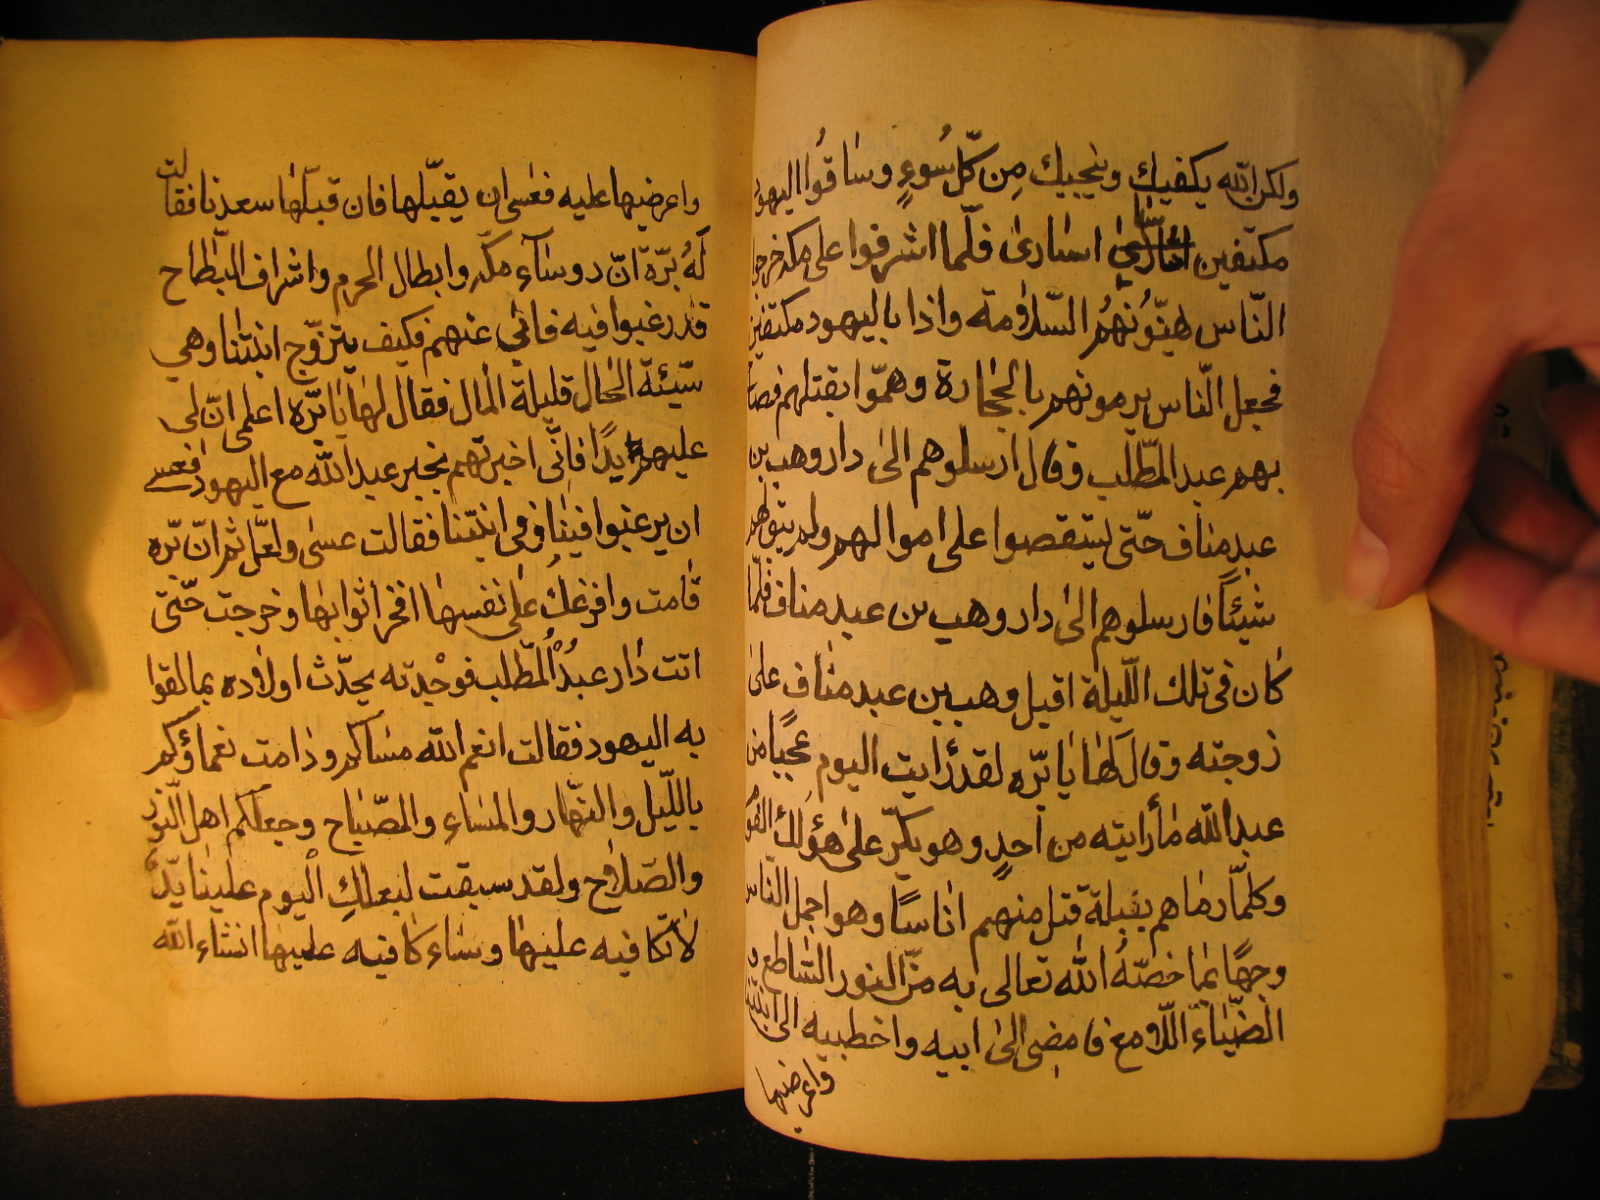 ولكن الله يكفيك وينجيك مِن كلّ سُوءٍ وساقوُا اليهود
مكتفين اسارىٰ فلّما اشرفوا على مكه خرجوا
النّاس هنّوُنهُم السّلامة واذا باليهود مكتفين
فجعل النّاس يرمونهم بالحجارة وهمّوا بقتلهم فصاح
بهم عبد المطّلب وقال ارسلوهم الىٰ دار وهب بن
عبد مناف حتّى يستقصوا على اموالهم ولم يتق لهم
شيئاً فارسلوهم الىٰ دار وهب بن عبد مناف فلّما
كان فى تلك اللّيلة اقبل وهب بن عبد مناف علىٰ
زوجته وقال لَها يا برّه لقد رأيت اليوم عجبًا من
عبد الله ما رأيته من احدٍ وهو يكرّ علىٰ هؤلٰك القوم
وكلّما رماهم بنبلة قتل منهم اناسًا وهو اجمل النّاس
وجهًا بما خصّهُ الله تعالى به منّ النور السّاطع و
الضّياء اللّامع فامضى الىٰ ابيه واخطبيه الى ابنتنا
واعرضيها
واعرضيها عليه فعسى ان يقبّلها فان قبّلها سعدنا فقالت
لهُ برّه انّ روساء مكّه وابطال الحرم واشراف البّطاح
قد رغبوا فيه فابى عنهم فكيف يتزوّج ابنتنا وهي
سّيئة الحال قليلة المال فقال لها يا برّه اعلمى انّ لى
عليهم يدًا فانّى اخبرتهم بخبر عبد الله مع اليهود فعسى
ان يرغبوا فينا وفى ابنتنا فقالت عسٰى ولعلّ ثم انّ برّه
قامت وافرغت على نفسها افخر اثوابها وخرجت حتّى
اتت دار عبدُ المطّلب فوجدته يحدّث اولاده بما لقوا
به اليهود فقالت انعم الله مساكم وذامت نعماؤكم
باللّيل والنّهار والمساء والصّباح وجعلكم اهل النّور
والصّلاح ولقد سبقت لبعلكِ اليوم علينا يدّ
لا نكافيه عليها وسٰاء كافيه عليها انشاء الله